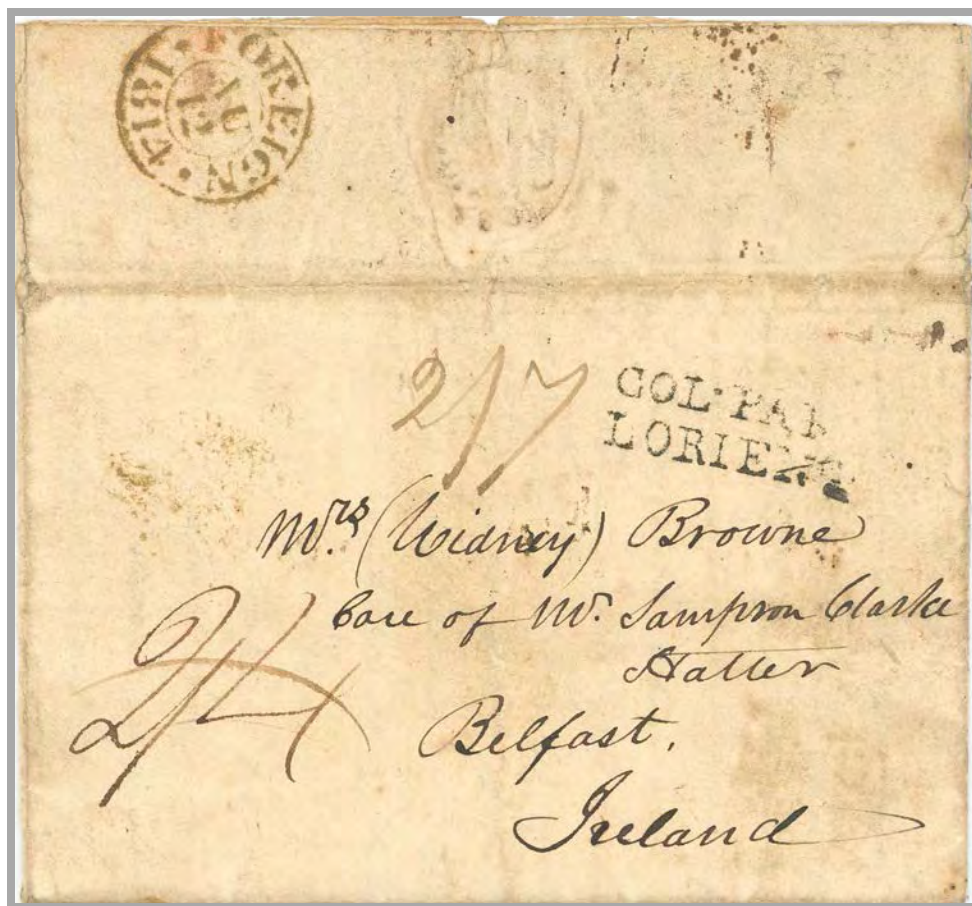 FOREIGN · 1814 ·
AU
12
2/7
COL·PAR
LORIENT
Mrs. (Widney) Browne
Care of Mr. Sampson Clarke
Hatter
2/4
Belfast.
Ireland